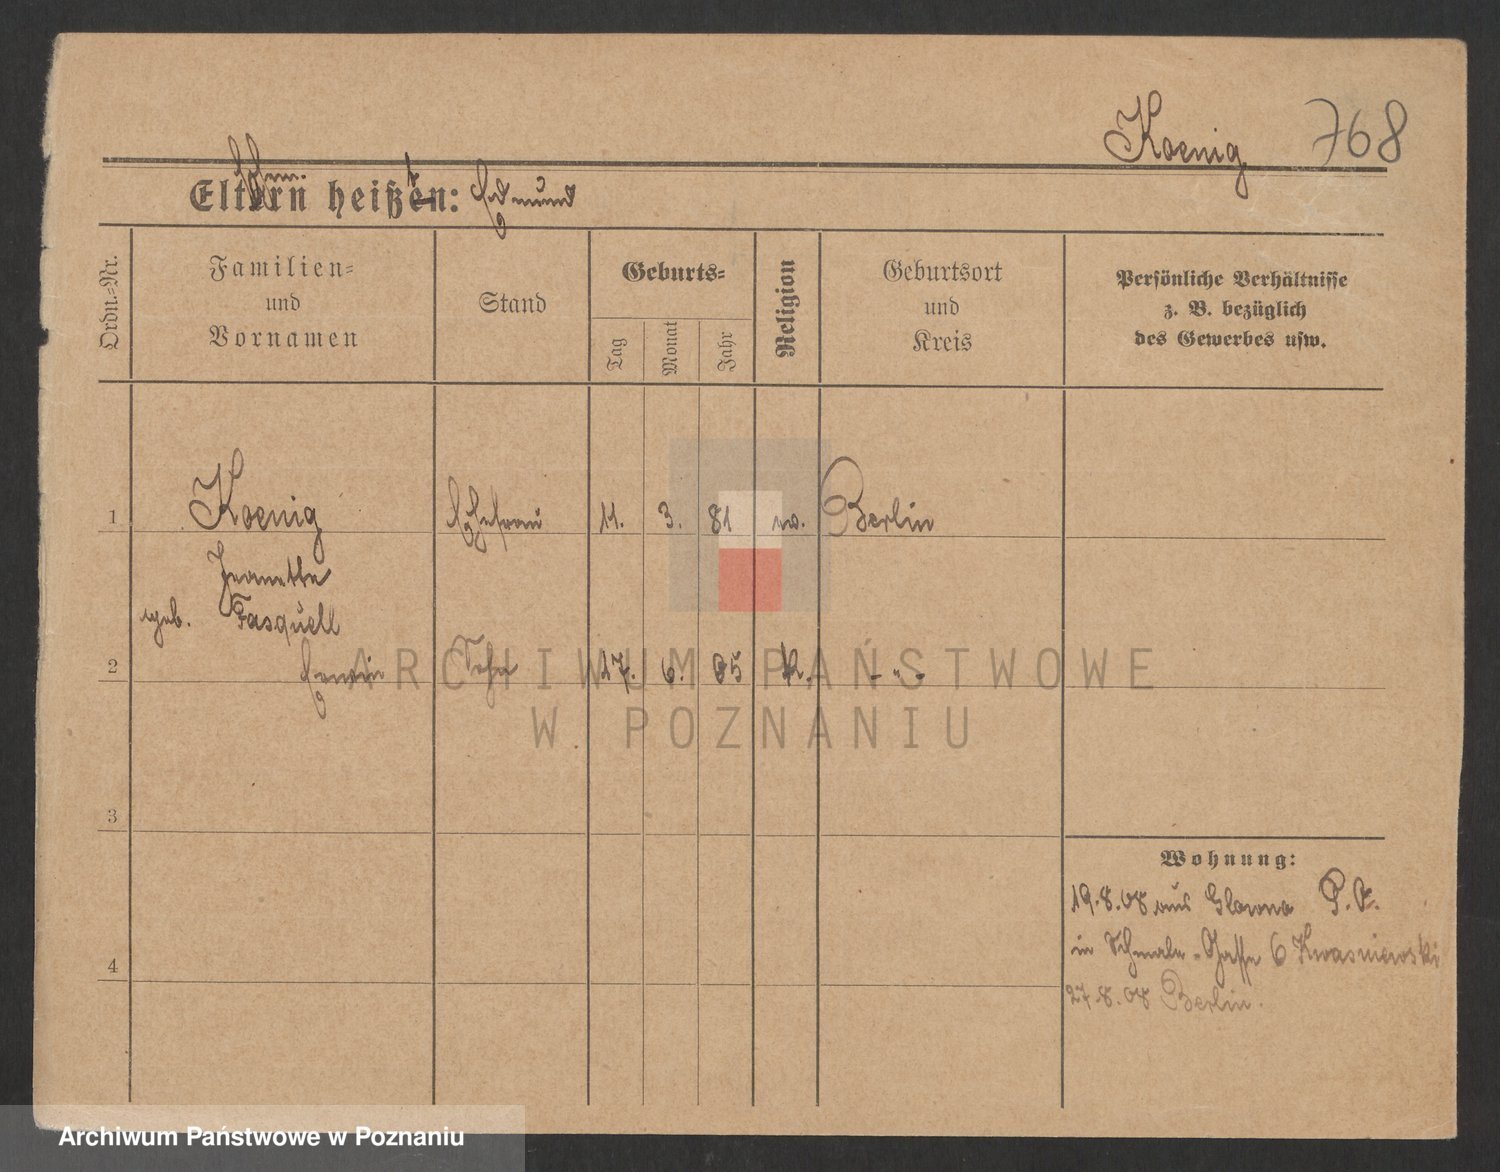 Koenig 768
Ehem.
Eltern heißt: Edmund
Ordn.-Nr.
Familien-
und
Vornamen
Stand
Geburts-
Tag
Monat
Jahr
Religion
Geburtsort
und
Kreis
Persönliche Verhältnisse
z. B. bezüglich
des Gewerbes usw.
1 Koenig Ehefrau 11. 3. 81 ev. Berlin
Jeanette
geb. Fasquell
2 Erwin Sohn 17. 6. 05 k. - " -
3
4
Wohnung:
19.8.08 aus Glowno P.O.
in Schmale-Gasse 6 Kwasniewski
27.8.08 Berlin.
ARCHIWUM PAŃSTWOWE
W POZNANIU
Archiwum Państwowe w Poznaniu